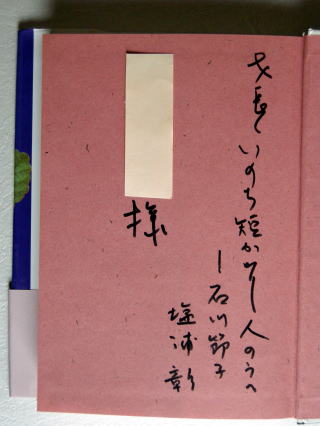 才長くいのち短かりし人のうへ
―石川節子
塩浦彰
様